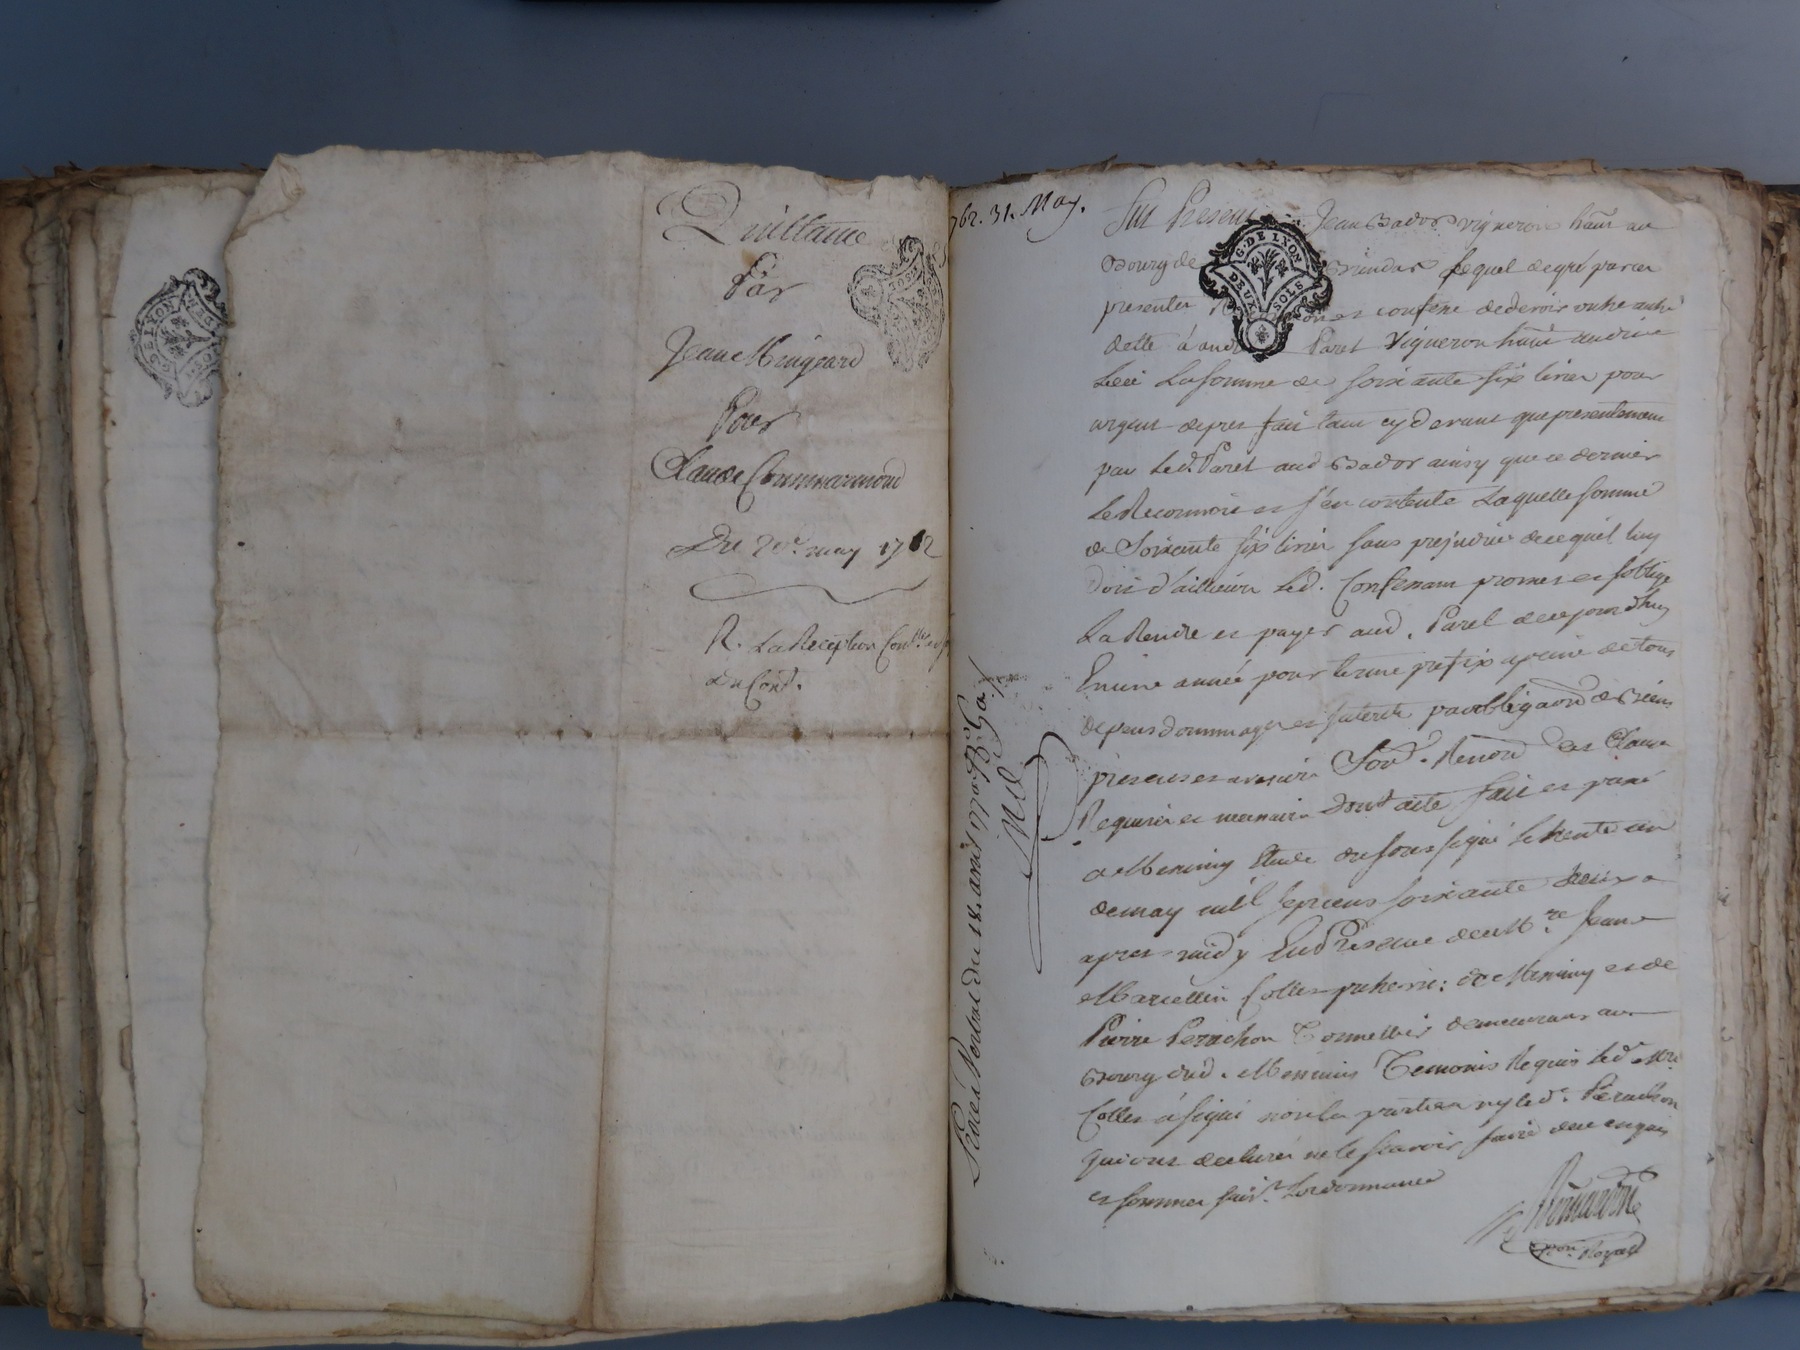 Quittance
Par
Jean Mingeard
Pour
Claude Commarmond
Du 20e. may 1762
R. La Reception Contlle.
du Cont.
G. DE LYON
DEUX SOLS
762. 31. May.
Fut Present Jean Bador vigneron hant au
Bourg de Brindas lequel de gré par ces
presentes et confesse de devoir outre autre
dette à Paret Vigneron hant audit
Lieu La somme de soixante six livres pour
argent de pret fait tant cy devant que presentement
par Led. Paret aud Bador ainsy que ce dernier
Le Reconnoit et s'en contente Laquelle somme
de Soixante six livres sans prejudice de ce qu'il luy
doit d'ailleurs Led. Confessant promet et s'oblige
La Rendre et payer aud. Paret de ce jourdhuy
En une année pour terme prefix a peine de tous
depens dommages et interets par obligaon de Biens
presens et avenir Sou. Renond et Clause
Requise et necessaire dont acte fait et passé
a Messimy Etude du soussigné le trente un
de may mil sept cens soixante deux
apres midy En Presence de Mre. Jean
Marcellin Colles de Messimy et de
Pierre Perachon Tonnellier demeurant au
Bourg dud. Messimis Temoins Requis led. Mre.
Colles à signé non les parties ny led. Perachon
qui ont declaré ne le sçavoir faire de ce enquis
et sommes suivt. Lordonnance
Royal